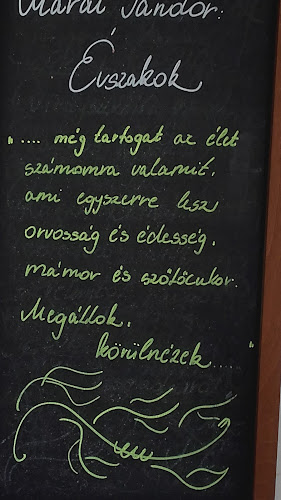 Márai Sándor:
Évszakok
".... még tartogat az élet
számomra valamit,
ami egyszerre lesz
orvosság és édesség,
mámor és szőlőcukor.
Megállok,
körülnézek...."